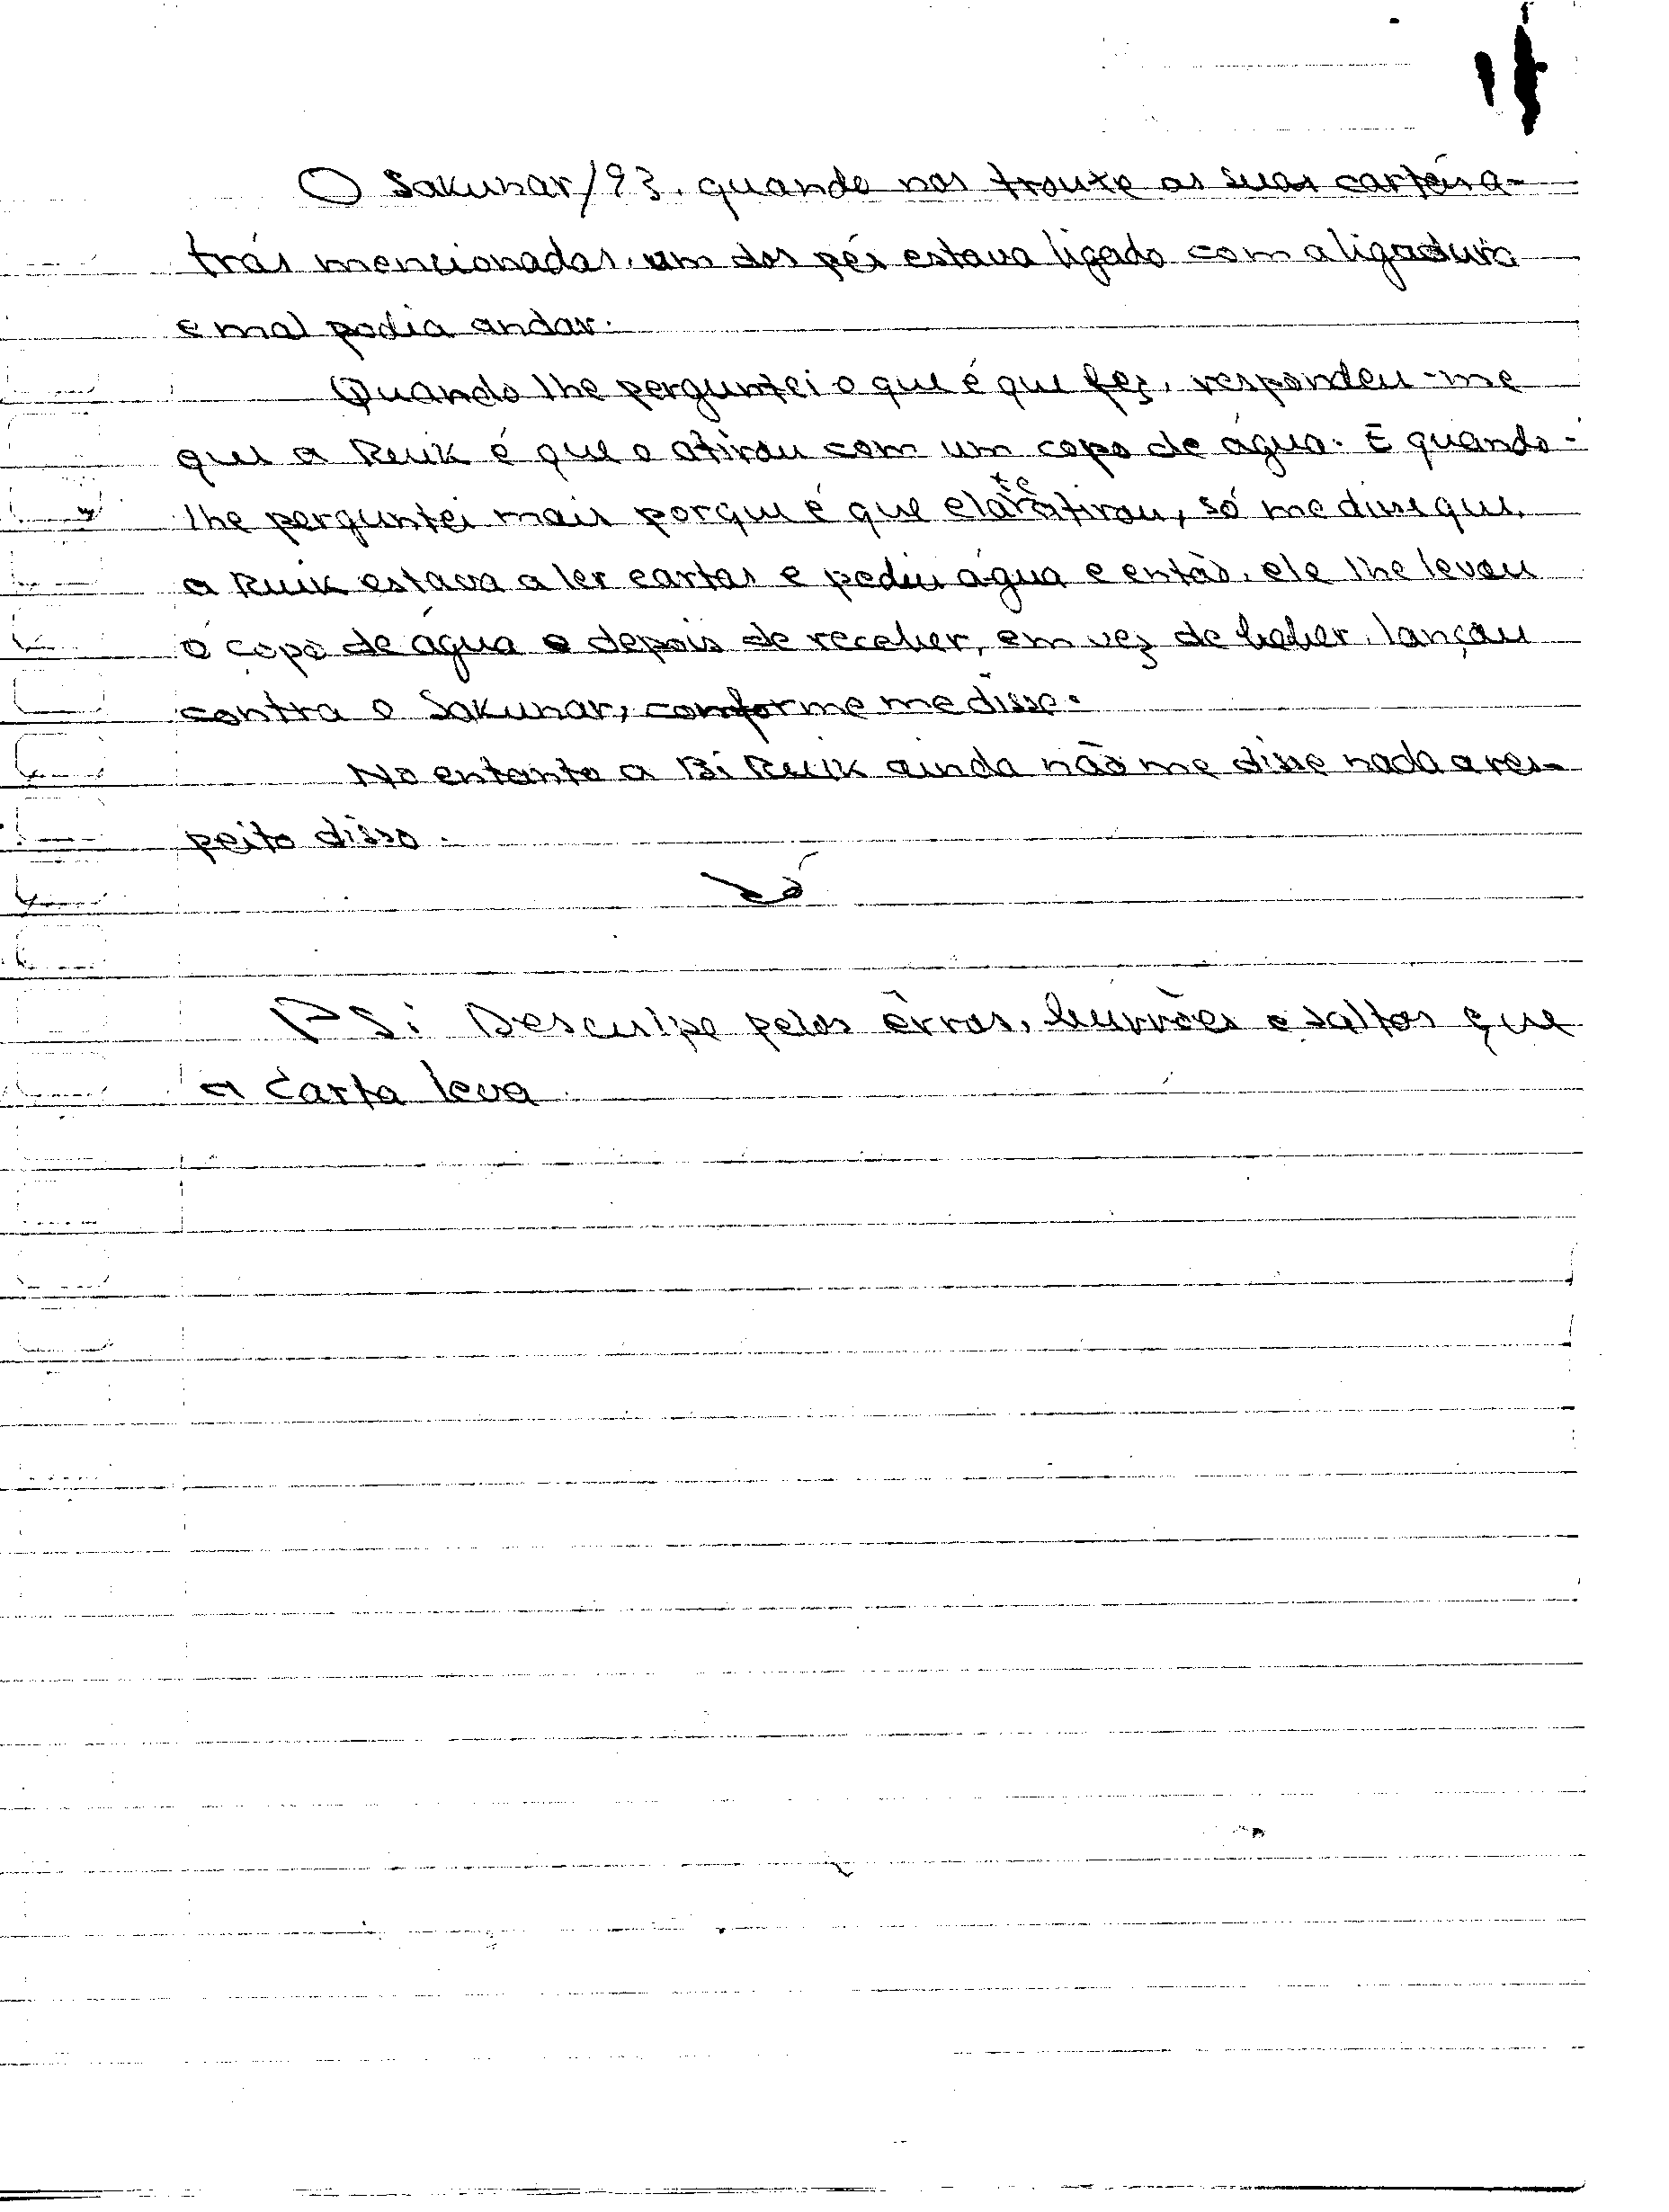 O Sakunar/93, quando nos trouxe as suas cartas a-
trás mencionadas, um dos pés estava ligado com a ligadura
e mal podia andar.
Quando lhe perguntei o que é que fez, respondeu-me
que a Ruik é que o atirou com um copo de água. E quando
lhe perguntei mais porque é que ela te atirou, só me disse que,
a Ruik estava a ler cartas e pediu água e então, ele lhe levou
o copo de água e depois de receber, em vez de beber, lançou
contra o Sakunar, conforme me disse.
No entanto a Bi Ruik ainda não me disse nada a res-
peito disso.
Só
PS: Desculpe pelos êrros, burrões e saltos que
a carta leva